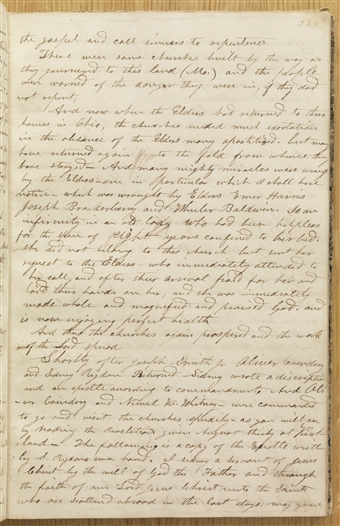 the gospel and call sinners to repentance
There were some churches built by the way as
they journeyed to this land (Mo.) and the people
were warned of the danger they were in, if they did
not repent.
And now when the Elders had returned to their
homes in Ohio, the churches needed much exortation
in the absence of the Elders many apostitized: but many
have returned again to the fold from whence they
have strayed— And many mighty miracles were wrought
by the Elders— one in particular which I shall here
notice— which was wrought by Elders Emer Harris
Joseph Brackenbury and Wheeler Baldwin. Is an
infirmity in an old lady who had been helpless
for the space of eight years confined to her bed.
She did not belong to this church but sent her
request to the Elders who immediately attended to
her call, and after their arrival praid for her and
laid their hands on her, and she was immediately
made whole and magnified and praised God, and
is now enjoying perfect health
And thus the churches again prospered and the work
of the Lord spread
Shortly after Joseph Smith jr. Oliver Cowdery
and Sidney Rigdon Returned Sidney wrote a discription
and an epistle according to commandment And Oli-
ver Cowdery and Newel K. Whitney were commanded
to go and visit the churches speedily as you will see
by reading the Revelation given August thirty at Kirt-
land— The following is a copy of the Epistle written
by S. Rigdons own hand, I Sidney a servant of Jesus
Christ by the will of God the Father and through
the faith of our Lord Jesus Christ unto the Saints
who are scattered abroad in the last days, may grace